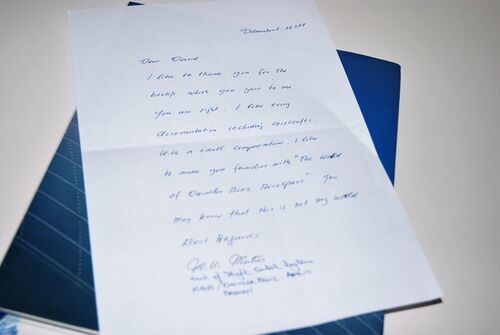 Dear David
I like to thank you for the
booklet which you gave to me
You are right. I like every
documentation including aircrafts.
With a small compensation, I like
to make you familiar with "The World
of Daimler Benz Aerospace". You
may know that this is not my world
Best Regards
Head of Flight Control Systems
Germany